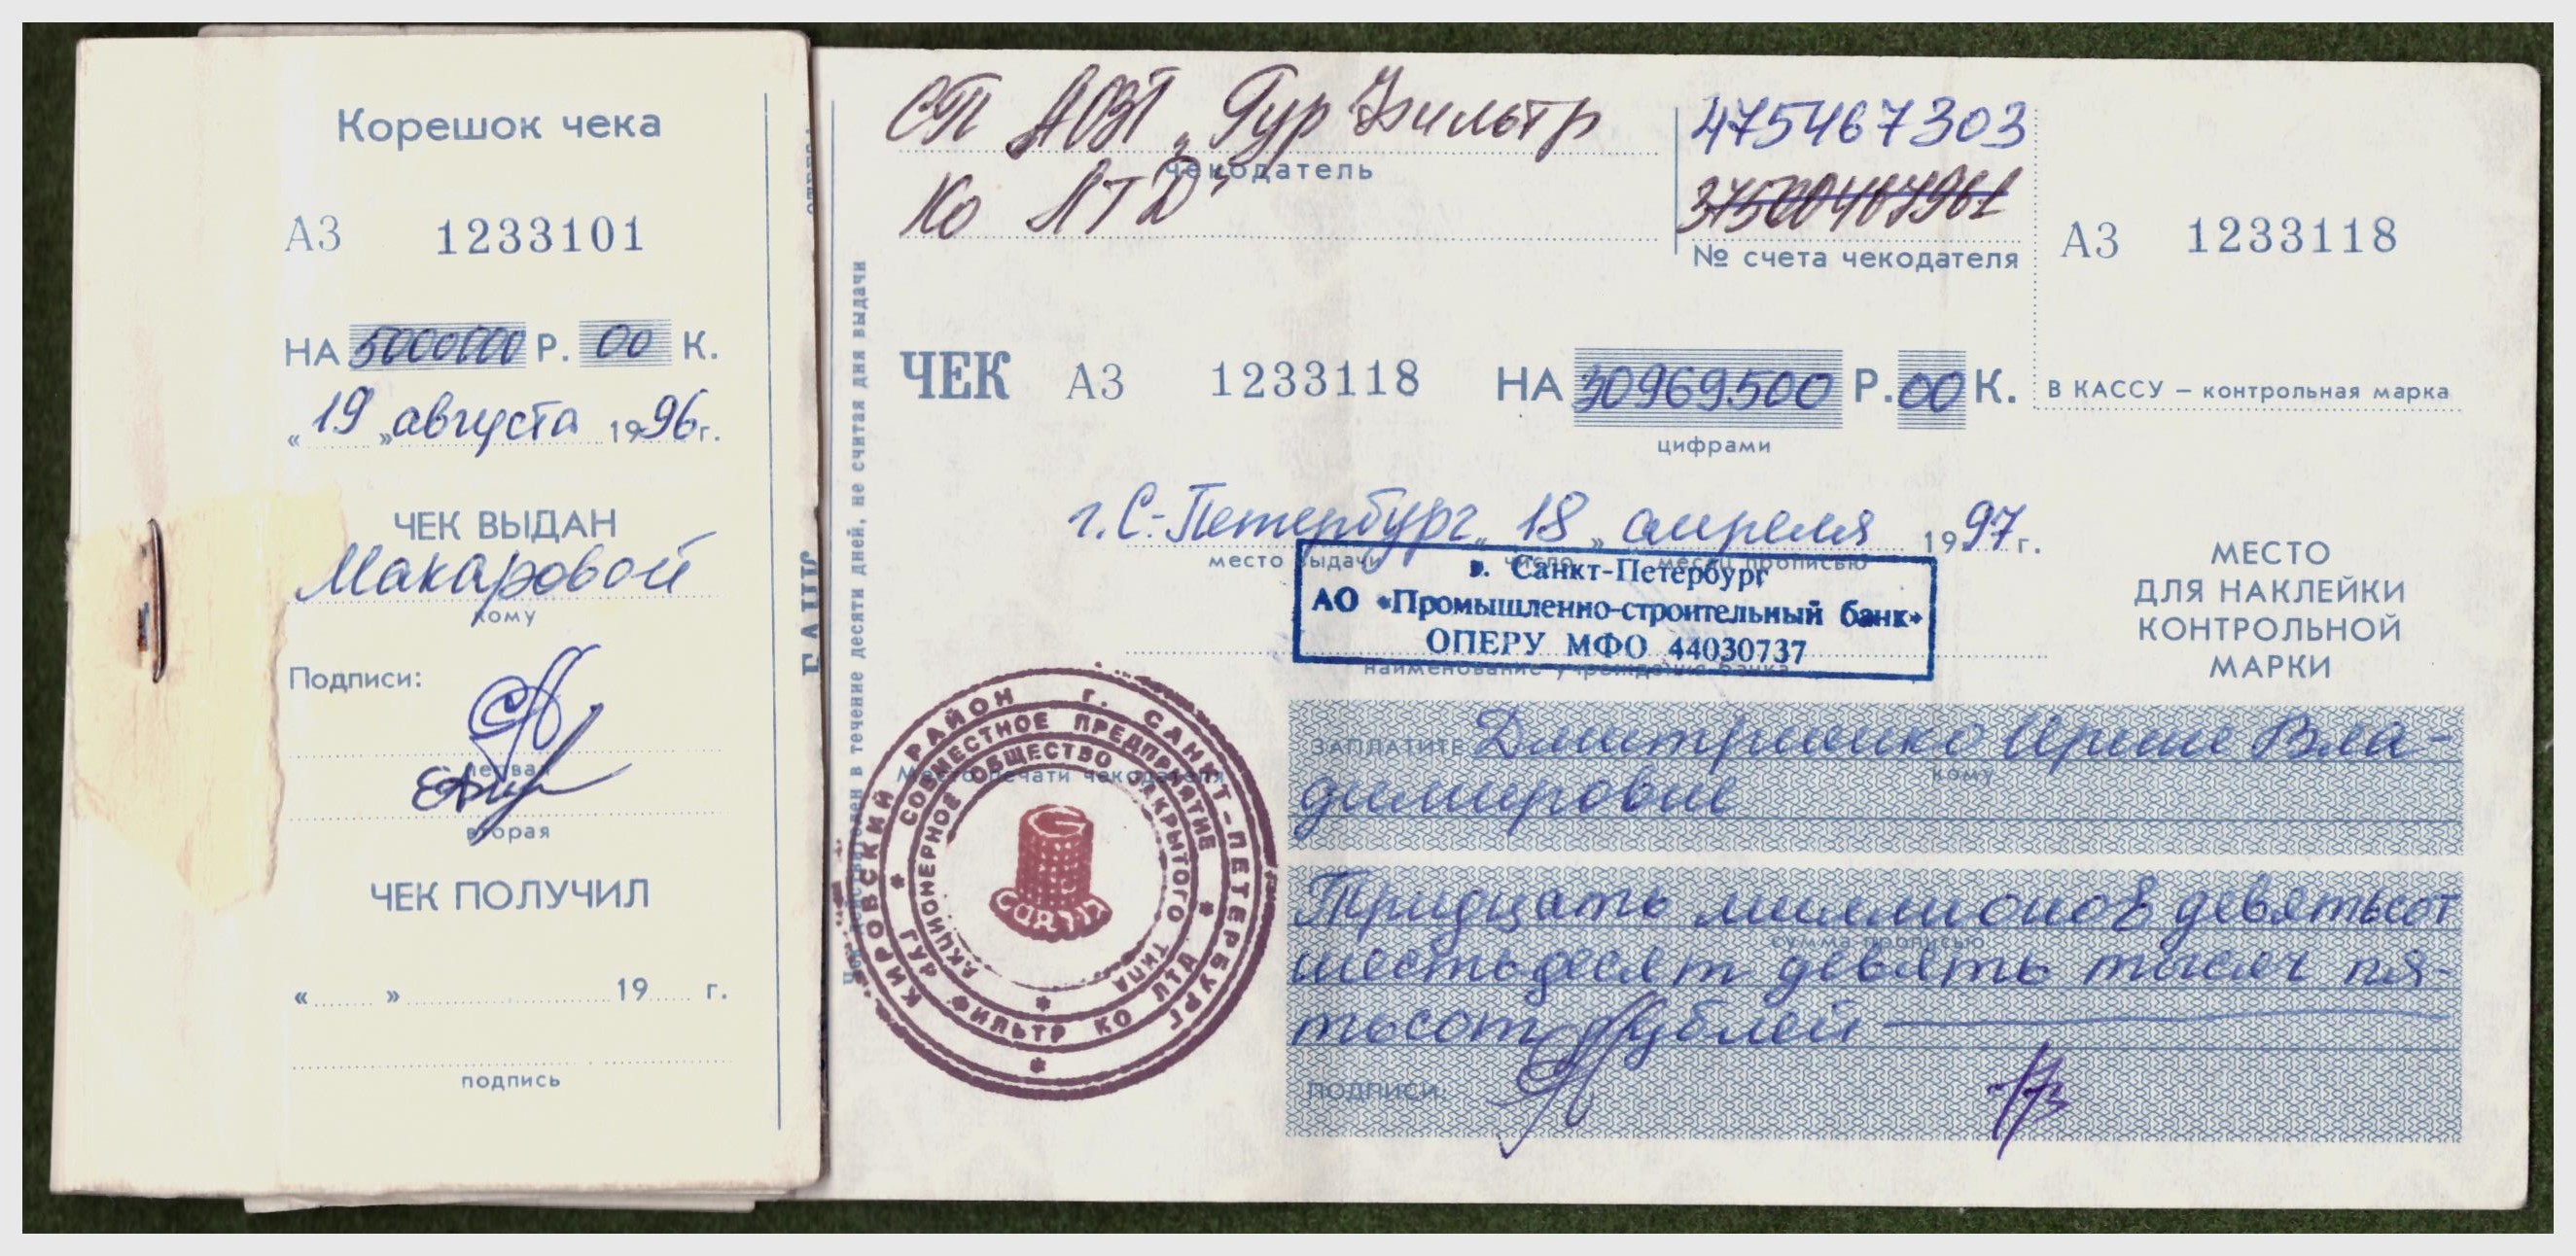 Корешок чека
АЗ 1233101
НА 5000000 Р. 00 К.
« 19 » августа 1996 г.
ЧЕК ВЫДАН
Макаровой
кому
Подписи:
первая
вторая
ЧЕК ПОЛУЧИЛ
« » 19 г.
подпись
СП АОЗТ „Гур Фильтр
чекодатель
Ко ЛТД"
475467303
№ счета чекодателя
АЗ 1233118
ЧЕК АЗ 1233118 НА 30969500 Р. 00 К.
цифрами
В КАССУ – контрольная марка
г. С-Петербург „ 18 » апреля 1997 г.
место выдачи число месяц прописью
г. Санкт-Петербург
АО «Промышленно-строительный банк»
ОПЕРУ МФО 44030737
наименование учреждения банка
МЕСТО
ДЛЯ НАКЛЕЙКИ
КОНТРОЛЬНОЙ
МАРКИ
Место печати чекодателя
КИРОВСКИЙ РАЙОН г. САНКТ-ПЕТЕРБУРГ
СОВМЕСТНОЕ ПРЕДПРИЯТИЕ * ГУР ФИЛЬТР КО ЛТД *
АКЦИОНЕРНОЕ ОБЩЕСТВО ЗАКРЫТОГО ТИПА *
ЗАПЛАТИТЕ Дмитриенко Ирине Вла-
кому
димировне
Тридцать миллионов девятьсот
сумма прописью
шестьдесят девять тысяч пя-
тьсот рублей
ПОДПИСИ:
Чек действителен в течение десяти дней, не считая дня выдачи